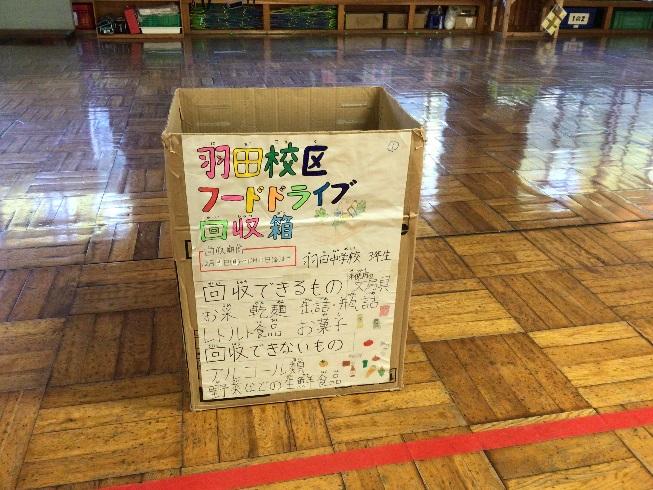 羽田校区
フードドライブ
回収箱
回収期間
羽田中学校 3年生
回収できるもの
未使用の
文房具
お菜 乾麺 缶詰・瓶詰
レトルト食品 お菓子
回収できないもの
アルコール類
野菜などの生鮮食品